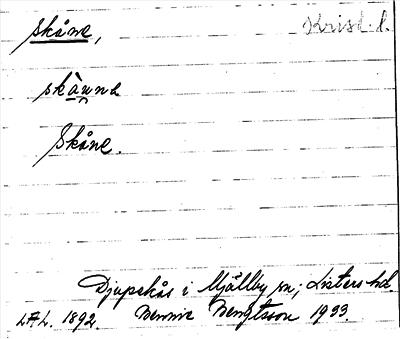 skåne,
Krist. l.
skå̀u̯na
Skåne.
Djupekås i Mjällby sn; Listers hd.
LAL. 1892. Bennie Bengtsson 1933.